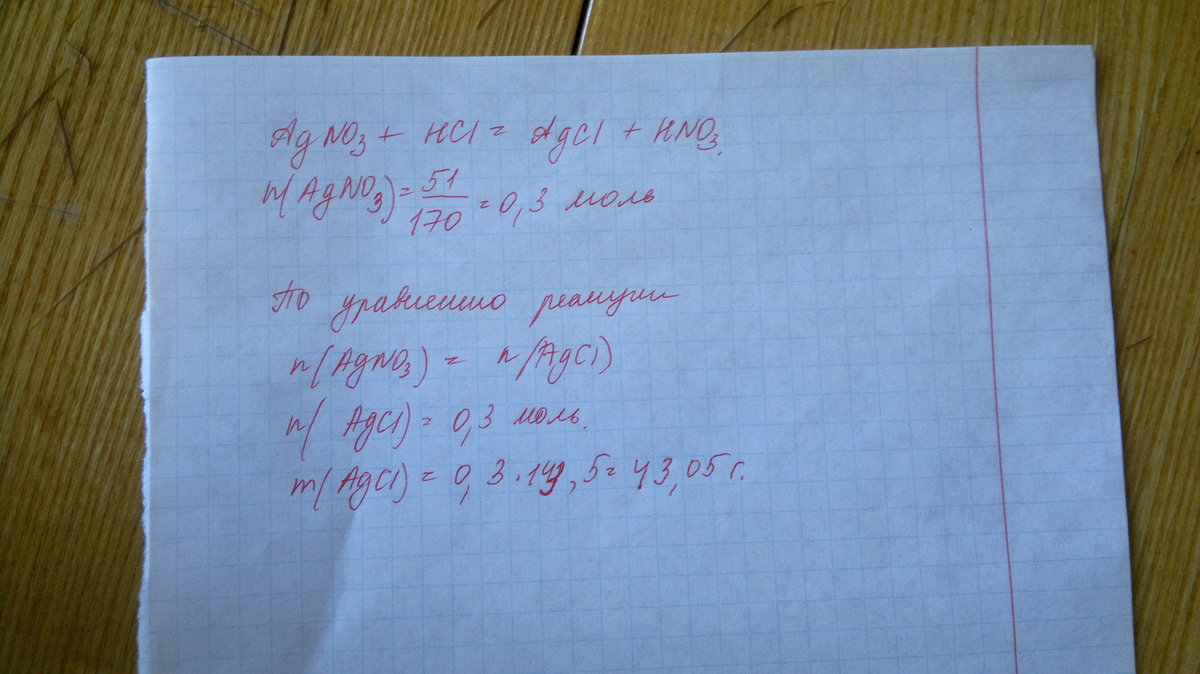 AgNO3 + HCl = AgCl + HNO3.
n(AgNO3) = 51/170 = 0,3 моль
По уравнению реакции
n(AgNO3) = n(AgCl)
n(AgCl) = 0,3 моль.
m(AgCl) = 0,3 · 143,5 = 43,05 г.